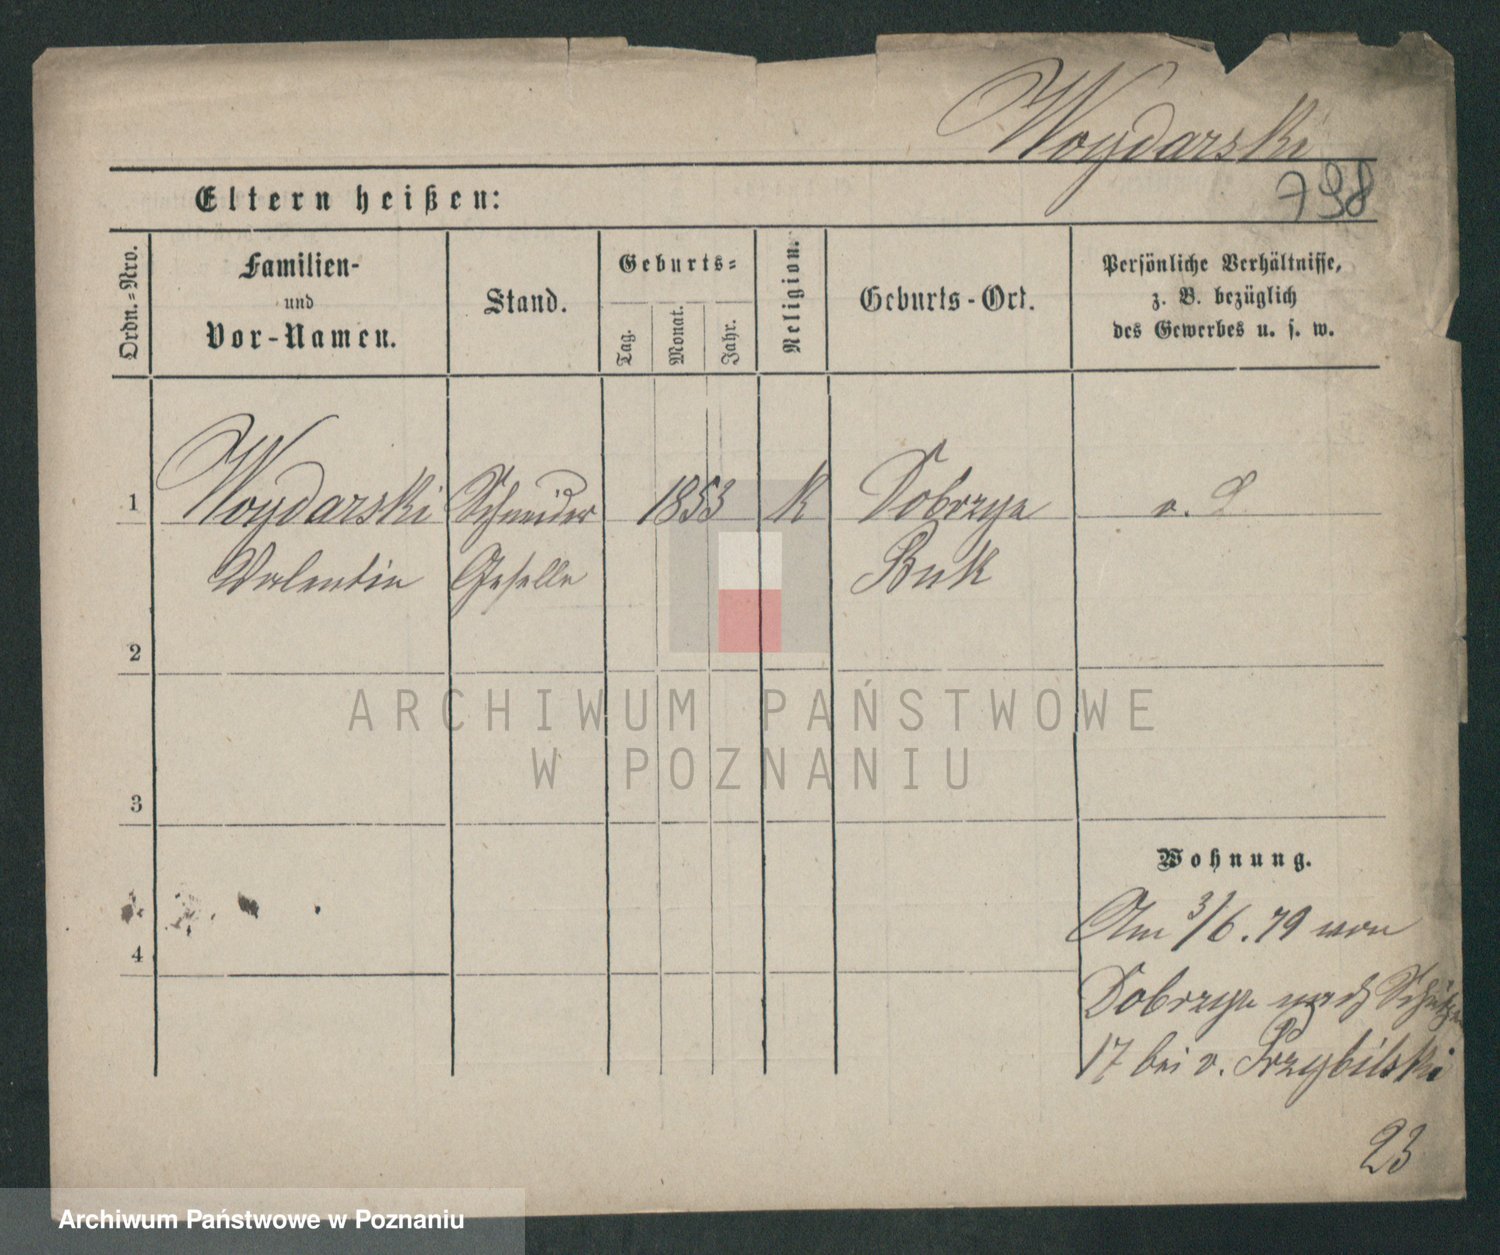 Woydarski
Eltern heißen:
798
Ordn.=Nro.
Familien-
und
Vor-Namen.
Stand.
Geburts=
Tag.
Monat.
Jahr.
Religion.
Geburts-Ort.
Persönliche Verhältnisse,
z. B. bezüglich
des Gewerbes u. s. w.
1
Woydarski
Schneider
1853
K
Dobrzyca
Valentin
Geselle
Buk
2
3
4
Wohnung.
Am 3/6.79 von
Dobrzyca nach Schützen
17 bei v. Przybilski
23
ARCHIWUM PAŃSTWOWE
W POZNANIU
Archiwum Państwowe w Poznaniu